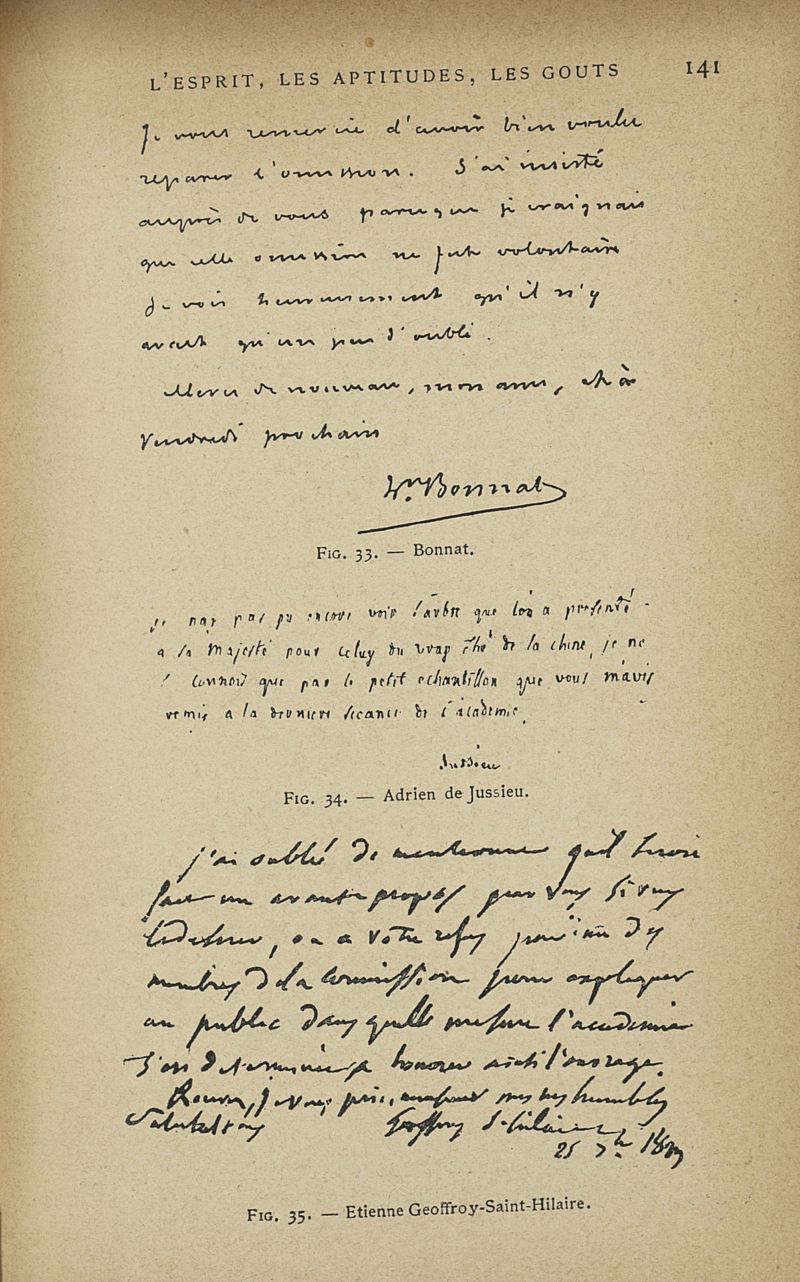 L'ESPRIT, LES APTITUDES, LES GOUTS 141
Je vous remercie d'avoir bien voulu
reparer l'omission. J'ai insisté
auprès de vous parceque je craignais
que cette omission ne fut volontaire
Je vois heureusement qu'il n'y
avait qu'un peu d'oubli.
Merci de nouveau, mon ami, et à
Vendredi prochain
Bonnat
FIG. 33. — Bonnat.
je nay pas pu encore voir l'arbre que lon a presenté
a sa Majesté pour celuy du vray thé de la chine, je ne
l connois que par le petit echantillon que vous m'avis
remis a la derniere seance de l'academie.
Jussieu
FIG. 34. — Adrien de Jussieu.
j'ai oublié de mentionner qu'il seroit
fait un avant propos par vous si vous
le desirez, ou a votre refus par un des
membres de la Commission pour expliquer
au public dans quelle mesure l'academie
s'est determinée a honorer ainsi l'ouvrage.
Recevez, je vous prie, mes humbles
Salutations Geoffroy St hilaire
25
FIG. 35. — Etienne Geoffroy-Saint-Hilaire.